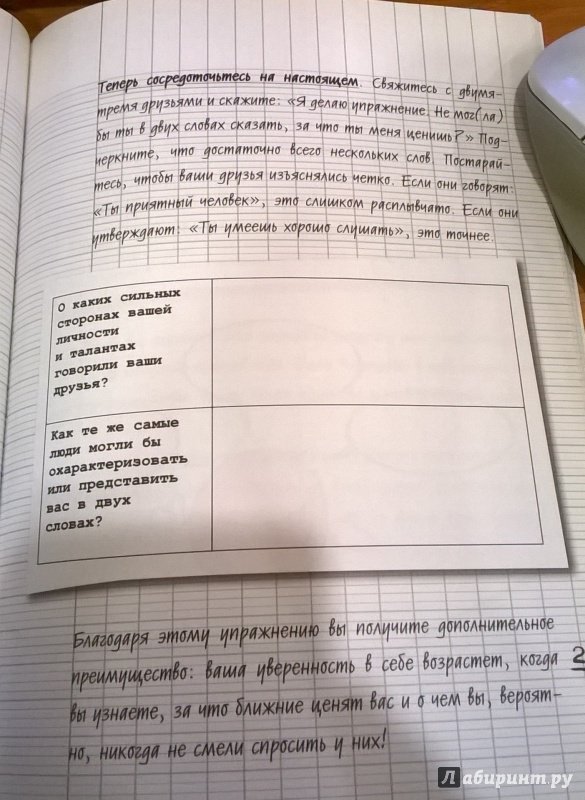 Теперь сосредоточьтесь на настоящем. Свяжитесь с двумя-
тремя друзьями и скажите: «Я делаю упражнение. Не мог(ла)
бы ты в двух словах сказать, за что ты меня ценишь?» Под-
черкните, что достаточно всего нескольких слов. Постарай-
тесь, чтобы ваши друзья изъяснялись четко. Если они говорят:
«Ты приятный человек», это слишком расплывчато. Если они
утверждают: «Ты умеешь хорошо слушать», это точнее.
О каких сильных
сторонах вашей
личности
и талантах
говорили ваши
друзья?
Как те же самые
люди могли бы
охарактеризовать
или представить
вас в двух
словах?
Благодаря этому упражнению вы получите дополнительное
преимущество: ваша уверенность в себе возрастет, когда
2
вы узнаете, за что ближние ценят вас и о чем вы, вероят-
но, никогда не смели спросить у них!
Лабиринт.ру